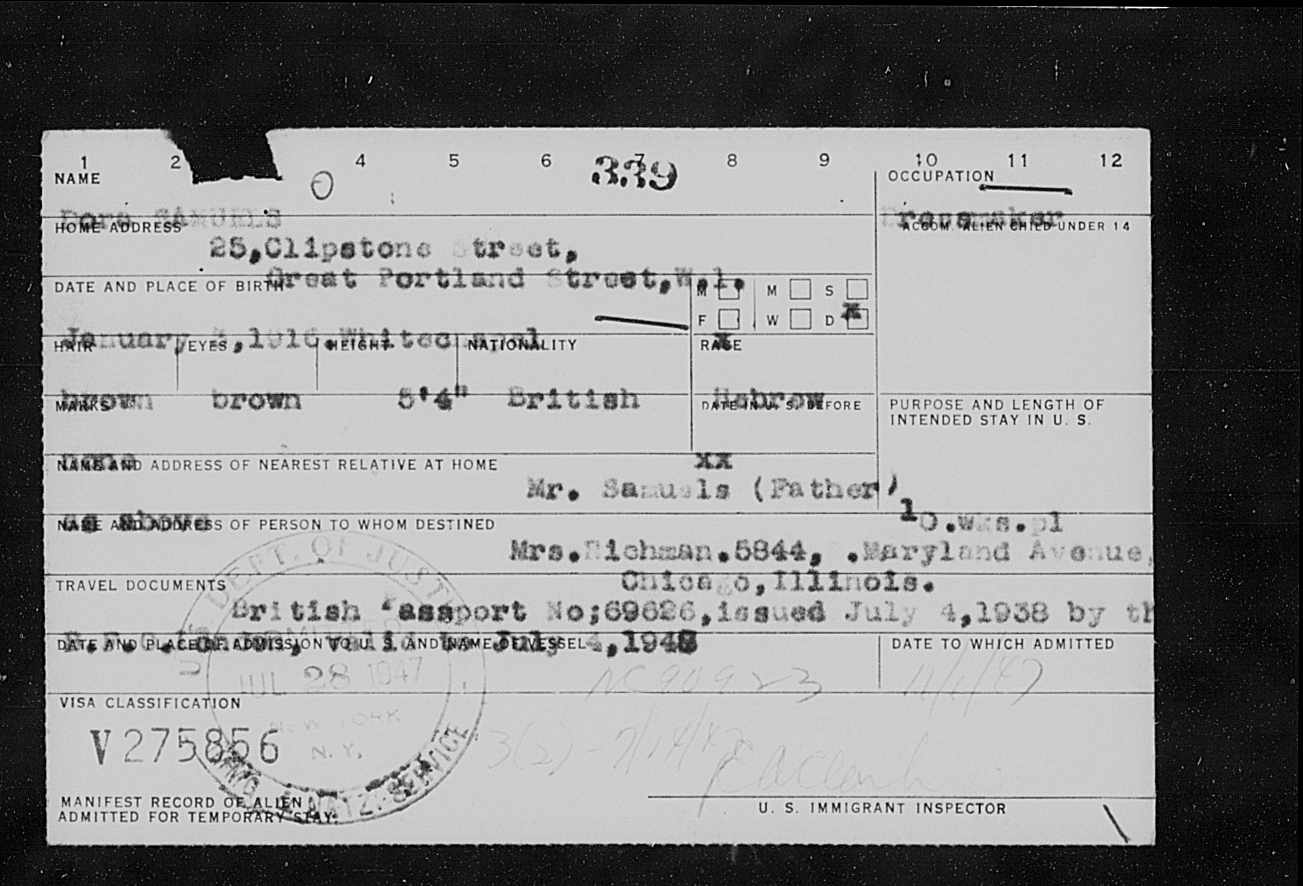 1 2 4 5 6 7 8 9 10 11 12
339
NAME
OCCUPATION
Dora SAMUELS
Dressmaker
HOME ADDRESS
ACCOM. ALIEN CHILD UNDER 14
25,Clipstone Street,
Great Portland Street,W.1.
DATE AND PLACE OF BIRTH
M M S
F W D x
January 3,1916.Whitechapel
x
HAIR EYES HEIGHT NATIONALITY RACE
brown brown 5'4" British Hebrew
MARKS
DATE IN U. S. BEFORE
PURPOSE AND LENGTH OF
INTENDED STAY IN U. S.
none
xx
NAME AND ADDRESS OF NEAREST RELATIVE AT HOME
Mr. Samuels (Father)
as above
10.wks.pl
NAME AND ADDRESS OF PERSON TO WHOM DESTINED
Mrs.Richman.5844, .Maryland Avenue,
Chicago,Illinois.
TRAVEL DOCUMENTS
British Passport No;69626,issued July 4,1938 by th
London, valid to July 4,1948
DATE AND PLACE OF ADMISSION TO U. S. AND NAME OF VESSEL
DATE TO WHICH ADMITTED
U.S. DEPT. OF JUSTICE
ADMITTED
JUL 28 1947
NEW YORK
N. Y.
IMMIG. & NATZ. SERVICE
11/1/47
VISA CLASSIFICATION
V275856
3(2)-7/14/47
MANIFEST RECORD OF ALIEN
ADMITTED FOR TEMPORARY STAY.
U. S. IMMIGRANT INSPECTOR